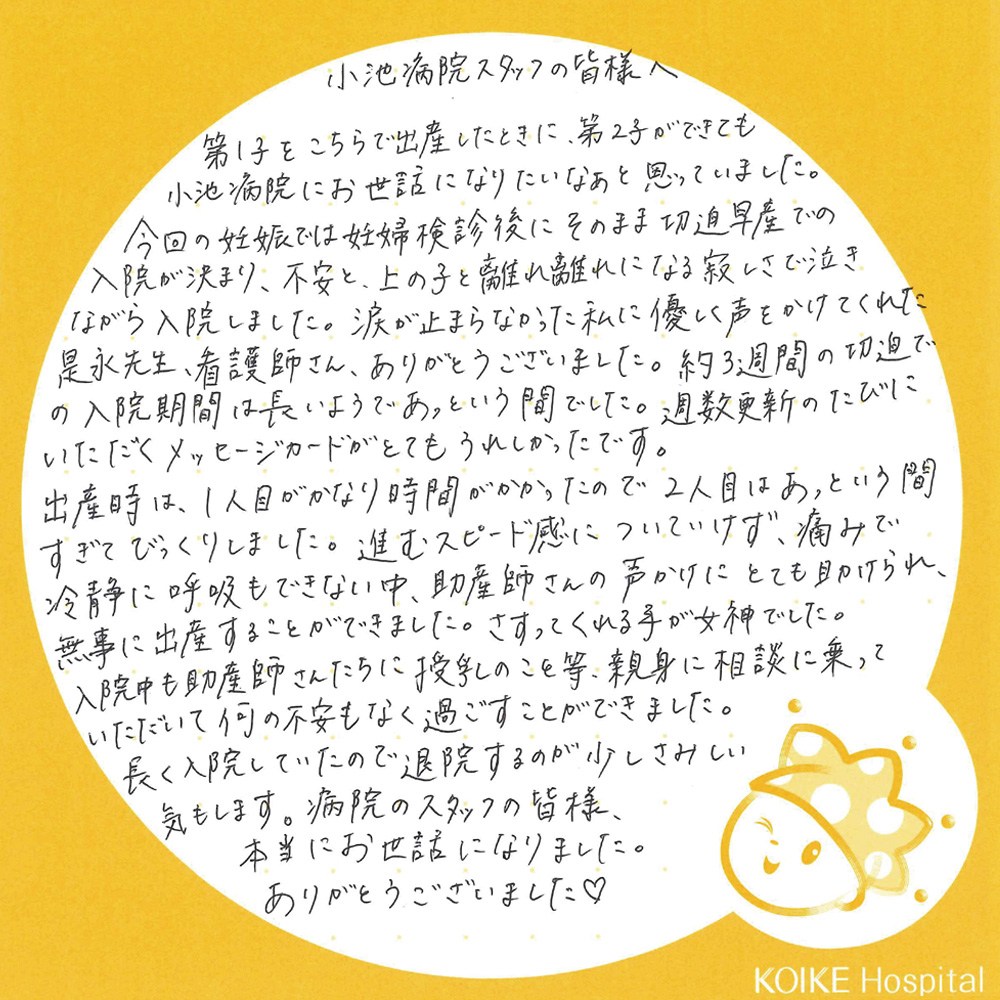 小池病院スタッフの皆様へ
第1子をこちらで出産したときに、第2子ができても
小池病院にお世話になりたいなぁと思っていました。
今回の妊娠では妊婦検診後にそのまま切迫早産での
入院が決まり、不安と、上の子と離れ離れになる寂しさで泣き
ながら入院しました。涙が止まらなかった私に優しく声をかけてくれた
是永先生、看護師さん、ありがとうございました。約3週間の切迫で
の入院期間は長いようであっという間でした。週数更新のたびに
いただくメッセージカードがとてもうれしかったです。
出産時は、1人目がかなり時間がかかったので2人目はあっという間
すぎてびっくりしました。進むスピード感についていけず、痛みで
冷静に呼吸もできない中、助産師さんの声かけにとても助けられ、
無事に出産することができました。さすってくれる手が女神でした。
入院中も助産師さんたちに授乳のこと等、親身に相談に乗って
いただいて何の不安もなく過ごすことができました。
長く入院していたので退院するのが少しさみしい
気もします。病院のスタッフの皆様、
本当にお世話になりました。
ありがとうございました♡
KOIKE Hospital